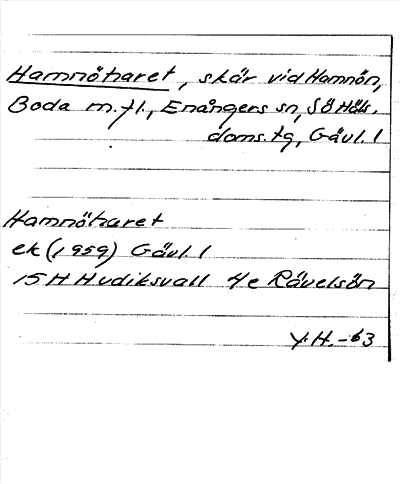 Hamnöharet, skär vid Hamnön,
Boda m.fl., Enångers sn, Sö Häls.
doms.tg, Gävl. l
Hamnöharet
ek (1959) Gävl. l
15 H Hudiksvall 4e Rävelsön
Y.H. -63